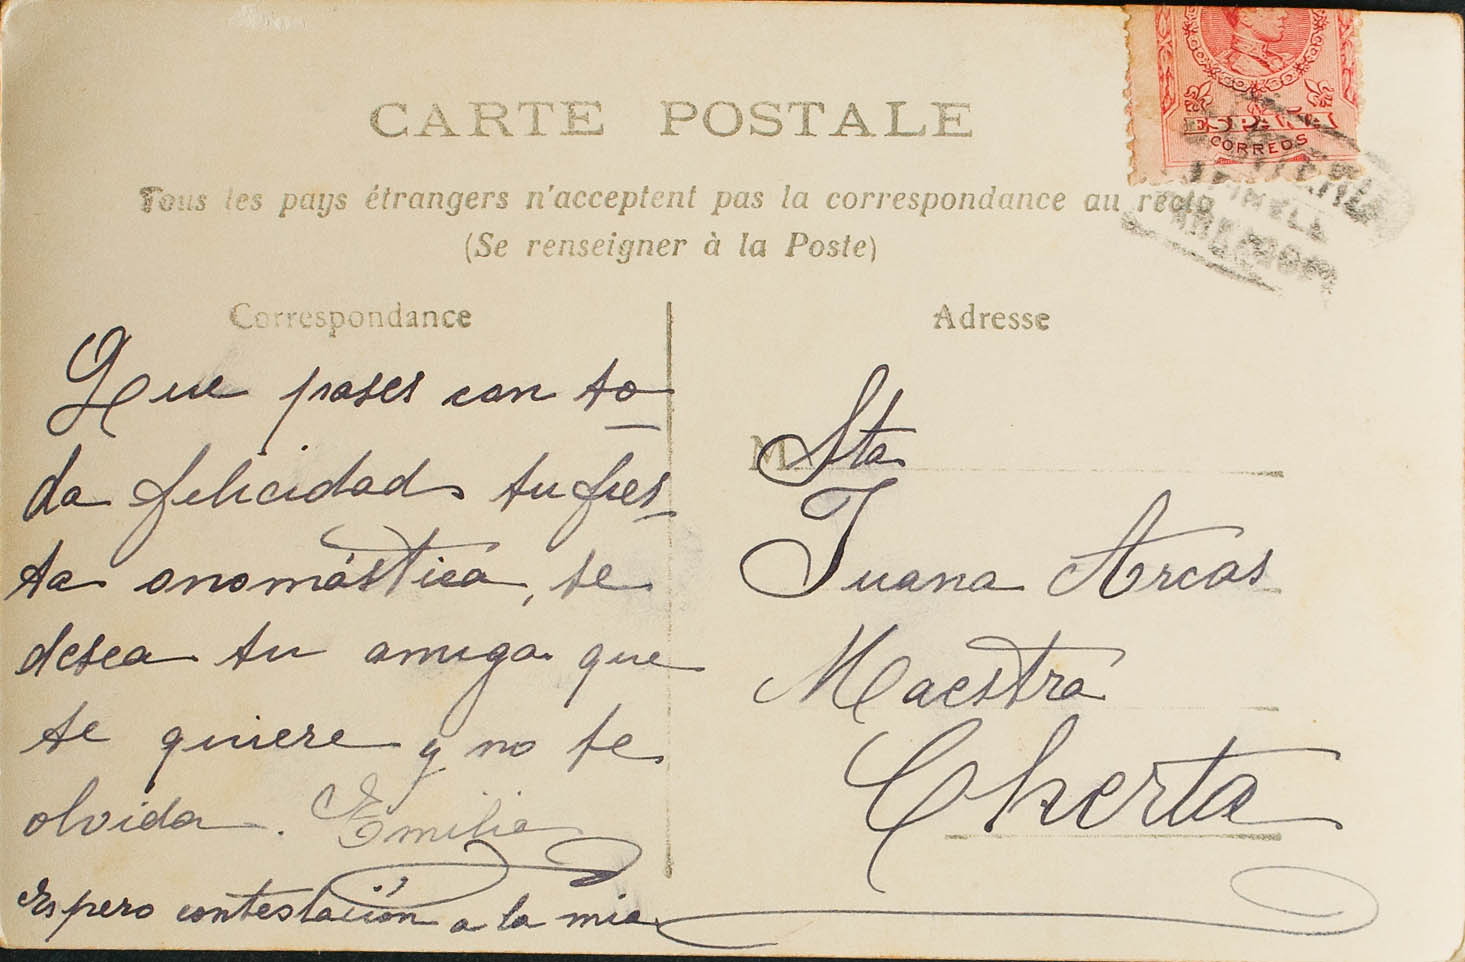 CARTE POSTALE
Tous les pays étrangers n'acceptent pas la correspondance au recto
(Se renseigner à la Poste)
CORREOS
Correspondance
Que pases con to-
da felicidad tu fies-
ta onomástica, te
desea tu amiga que
te quiere y no te
olvida. Emilia
Espero contestación a la mia
Adresse
M
Sta
Juana Arcas
Maestra
Cherta